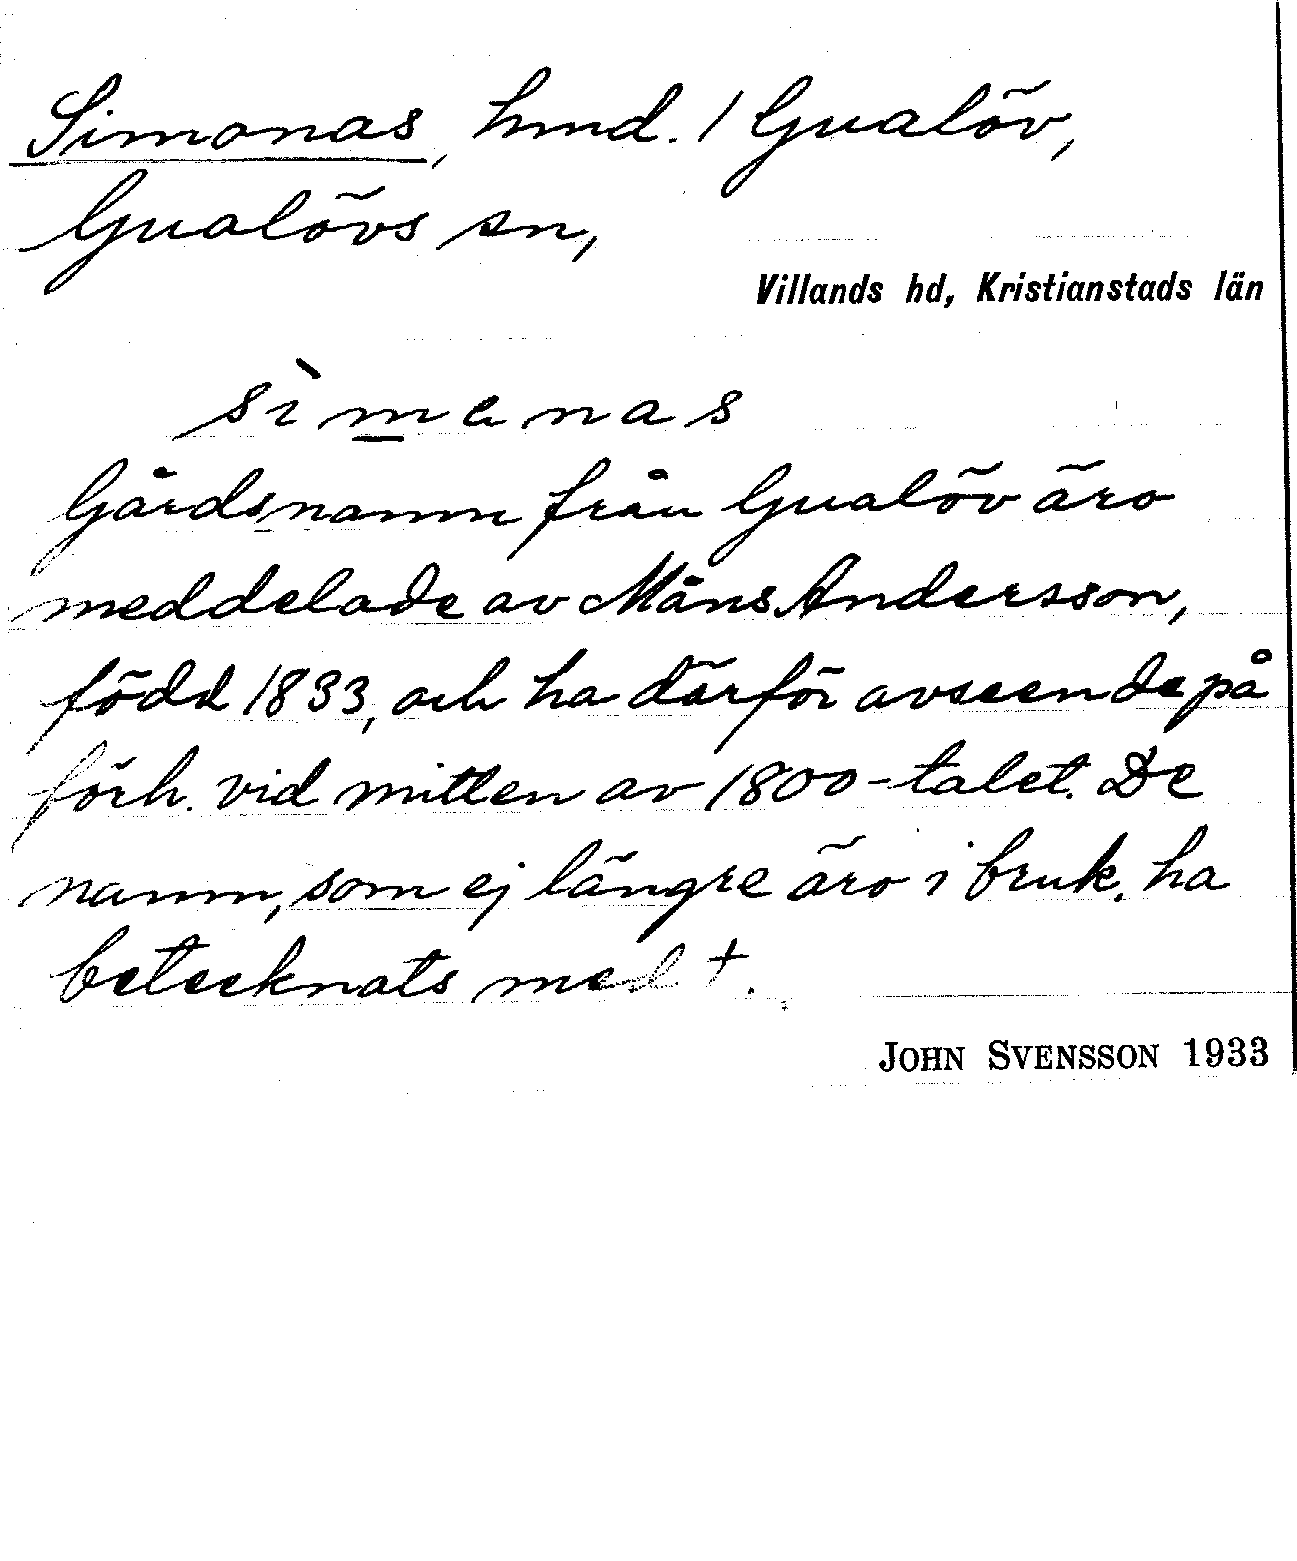 Simonas, hmd. 1 Gualöv,
Gualövs sn,
Villands hd, Kristianstads län
sìmanas
Gårdsnamn från Gualöv äro
meddelade av Måns Andersson,
född 1833, och ha därför avseende på
förh. vid mitten av 1800-talet. De
namn, som ej längre äro i bruk, ha
betecknats med +.
JOHN SVENSSON 1933